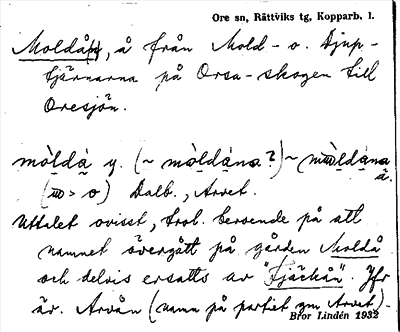 Ore sn, Rättviks tg, Kopparb. l.
Moldån, å från Mold- o. Djup-
tjärnarna på Orsa-skogen till
Oresjön.
mòldà y. (~ mòldána?) ~ mòldána
(ɯ > o) Dalb., Arvet. ä.
Uttalet ovisst, trol. beroende på att
namnet övergått på gården Moldå
och delvis ersatts av "Fjäckån". Jfr
är. Arvån (namn på partiet gm Arvet).
Bror Lindén 1932